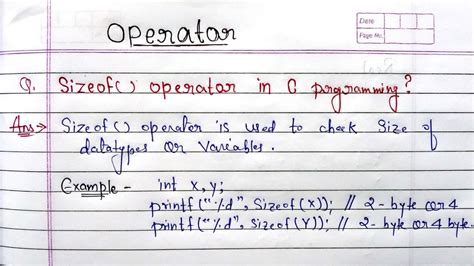 Operator
Date
Page No.
Q. Sizeof() operator in C prgramming?
Ans→ Sizeof() operator is used to check Size of
datatypes or variables.
Example - int x, y;
printf("%d", Sizeof(x)); // 2- byte or 4
printf("%d", Sizeof(Y)); // 2-byte or 4 byte.